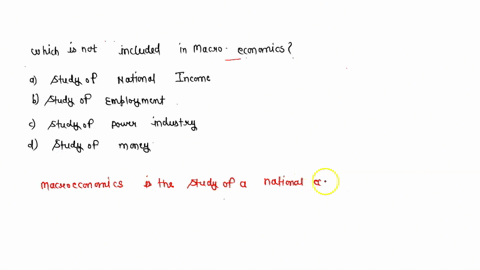 which is not included in Macro. economics?
a) study of National Income
b) study of Employment
c) study of power industry
d) study of money
macroeconomics is the study of a national